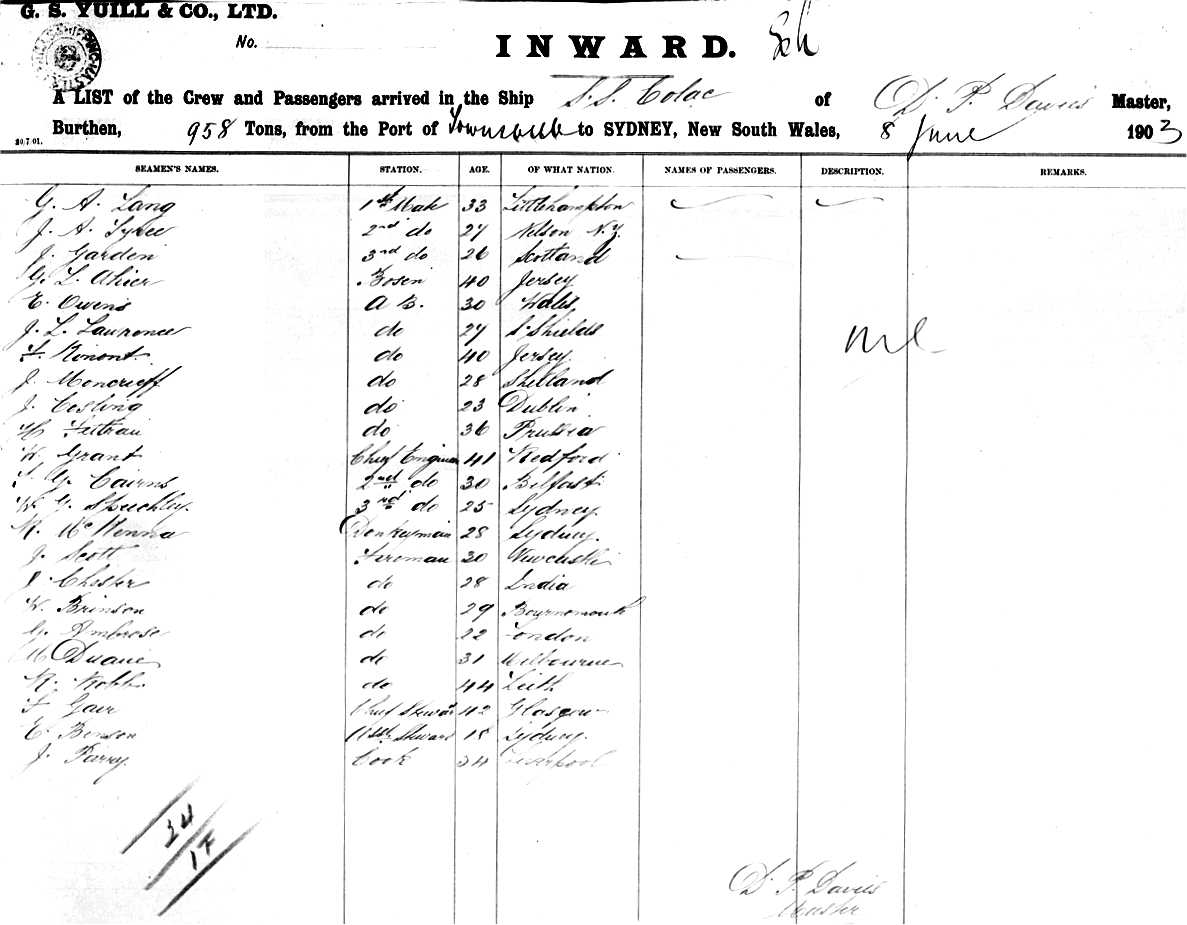 G. S. YUILL & CO., LTD.
No.
INWARD.
A LIST of the Crew and Passengers arrived in the Ship S.S. Colac of D. P. Davies Master,
Burthen, 958 Tons, from the Port of Townsville to SYDNEY, New South Wales, 8 June 1903
20/7/01.
SEAMEN'S NAMES. STATION. AGE. OF WHAT NATION. NAMES OF PASSENGERS. DESCRIPTION. REMARKS.
G. A. Lang 1st Mate 33 Littlehampton
J. A. Tyree 2nd do 27 Nelson N.Z.
J. Garden 3rd do 26 Scotland
G. L. Ahier Bosen 40 Jersey
E. Owens A B. 30 Wales
J. L. Laurence do 27 S. Shields
F. Rimont do 40 Jersey
nil
J. Moncrieff do 28 Shetland
J. Cosling do 23 Dublin
do 36 Prussia
W. Grant Chief Engineer 41 Redford
G. Cairns 2nd do 30 Belfast
W. G. Speechley 3rd do 25 Sydney
R. McKenna Donkeyman 28 Sydney.
J. Scott Fireman 30 Newcastle
J. Chester do 28 India
W. Brinson do 29 Bournemouth
G. Ambrose do 22 London
M Duane do 31 Melbourne
R. Robb do 44 Leith
F Gair Chief Steward 42 Glasgow
E. Benson Asst. Steward 18 Sydney.
J. Parry Cook 34 Liverpool
24
1F
D. P. Davies
Master